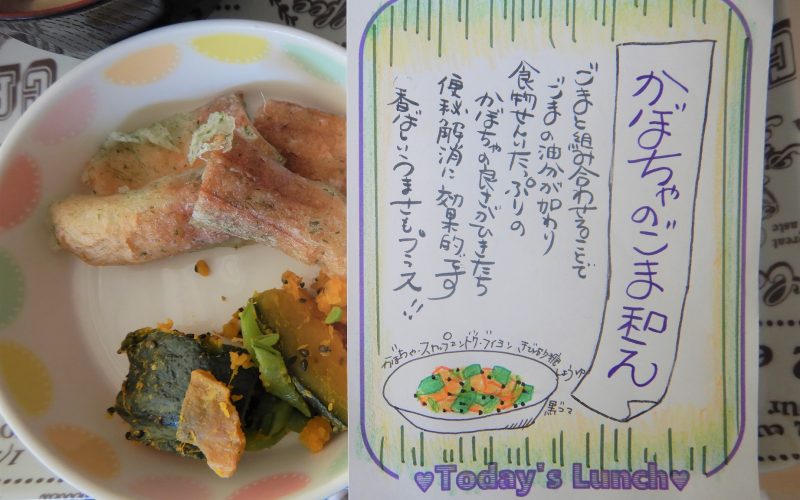 かぼちゃのごま和え
ごまと組み合わせることで
ごまの油分が加わり
食物せんいたっぷりの
かぼちゃの良さがひきたち
便秘解消に効果的です
香ばしいうまさもプラス!!
かぼちゃ・スナップエンドウ・ブイヨン きび砂糖
しょうゆ
黒ゴマ
Today's Lunch